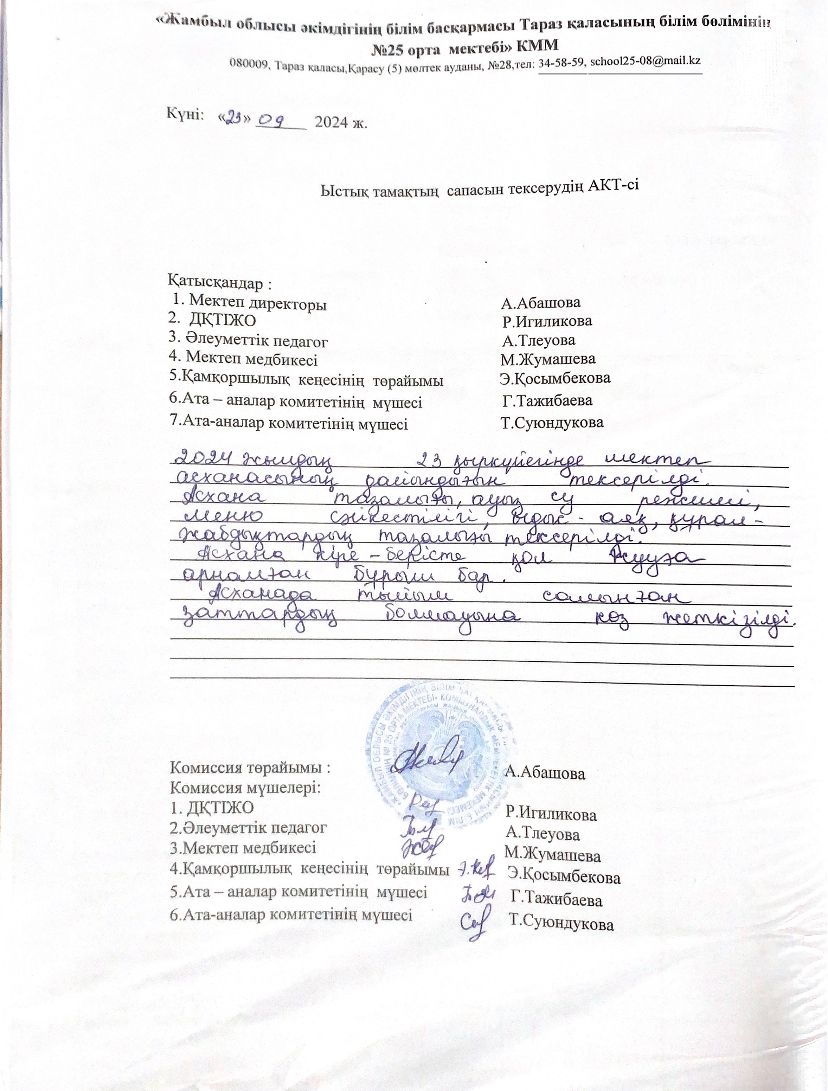 «Жамбыл облысы әкімдігінің білім басқармасы Тараз қаласының білім бөлімінің
№25 орта мектебі» КММ
080009, Тараз қаласы,Қарасу (5) мөлтек ауданы, №28,тел: 34-58-59, school25-08@mail.kz
Күні: «23» 09 2024 ж.
Ыстық тамақтың сапасын тексерудің АКТ-сі
Қатысқандар :
1. Мектеп директоры А.Абашова
2. ДҚТІЖО Р.Игиликова
3. Әлеуметтік педагог А.Тлеуова
4. Мектеп медбикесі М.Жумашева
5.Қамқоршылық кеңесінің төрайымы Э.Қосымбекова
6.Ата – аналар комитетінің мүшесі Г.Тажибаева
7.Ата-аналар комитетінің мүшесі Т.Суюндукова
2024 жылдың 23 қыркүйегінде мектеп
асханасының дайындығын тексерілді.
Асхана тазалығы, ауыз су режимі,
меню сәйкестілігі, ыдыс - аяқ, құрал-
жабдықтардың тазалығы тексерілді.
Асхана кіре – берісте қол жууға
арналған бұрыш бар.
Асханада тыйым салынған
заттардың болмауына көз жеткізілді.
Комиссия төрайымы : А.Абашова
Комиссия мүшелері:
1. ДҚТІЖО Р.Игиликова
2.Әлеуметтік педагог А.Тлеуова
3.Мектеп медбикесі М.Жумашева
4.Қамқоршылық кеңесінің төрайымы Э.Қосымбекова
5.Ата – аналар комитетінің мүшесі Г.Тажибаева
6.Ата-аналар комитетінің мүшесі Т.Суюндукова